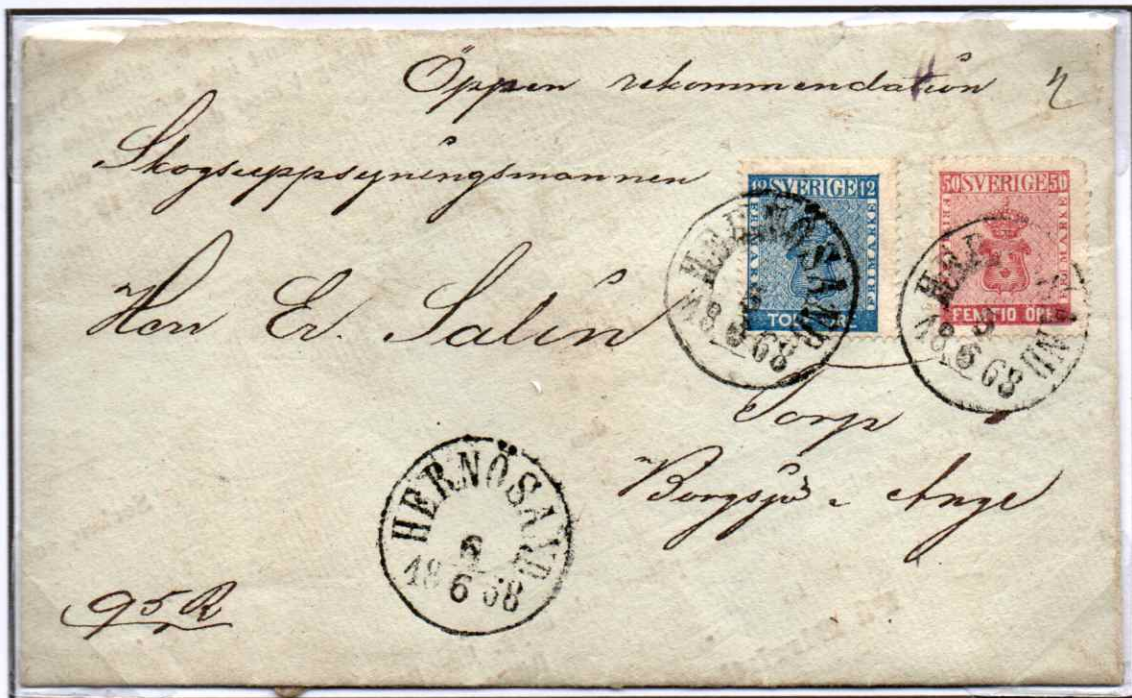 Öppen rekommendation
Skogsuppsyningsmannen
Herr Er. Salin
Torp
Borgsjö & Ange
95 R
12 SVERIGE 12
FRIMÄRKE
TOLF ÖRE
50 SVERIGE 50
FRIMÄRKE
FEMTIO ÖRE
HERNÖSAND
6
18 6 68
HERNÖSAND
6
18 6 68
HERNÖSAND
6
18 6 68